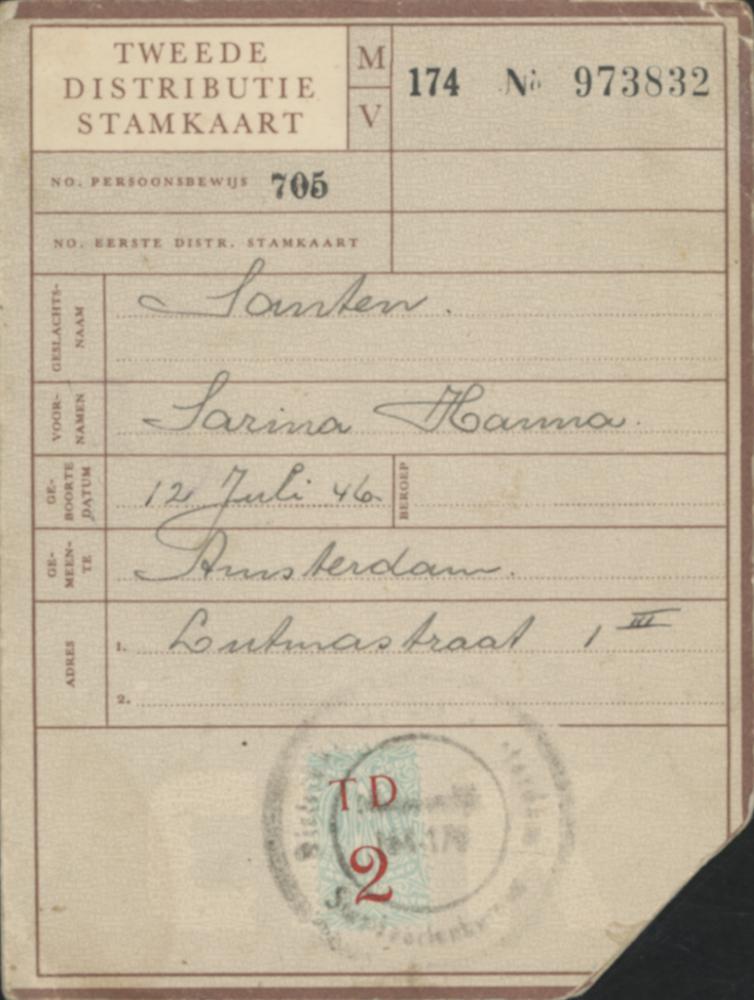 TWEEDE
DISTRIBUTIE
STAMKAART
M
V
174 No 973832
NO. PERSOONSBEWIJS 705
NO. EERSTE DISTR. STAMKAART
GESLACHTS-
NAAM
Santen.
VOOR-
NAMEN
Sarina Hanna.
GE-
BOORTE
DATUM
12 Juli 46.
BEROEP
GE-
MEEN-
TE
Amsterdam.
ADRES
1. Lutmastraat 1 III
2.
TD
2